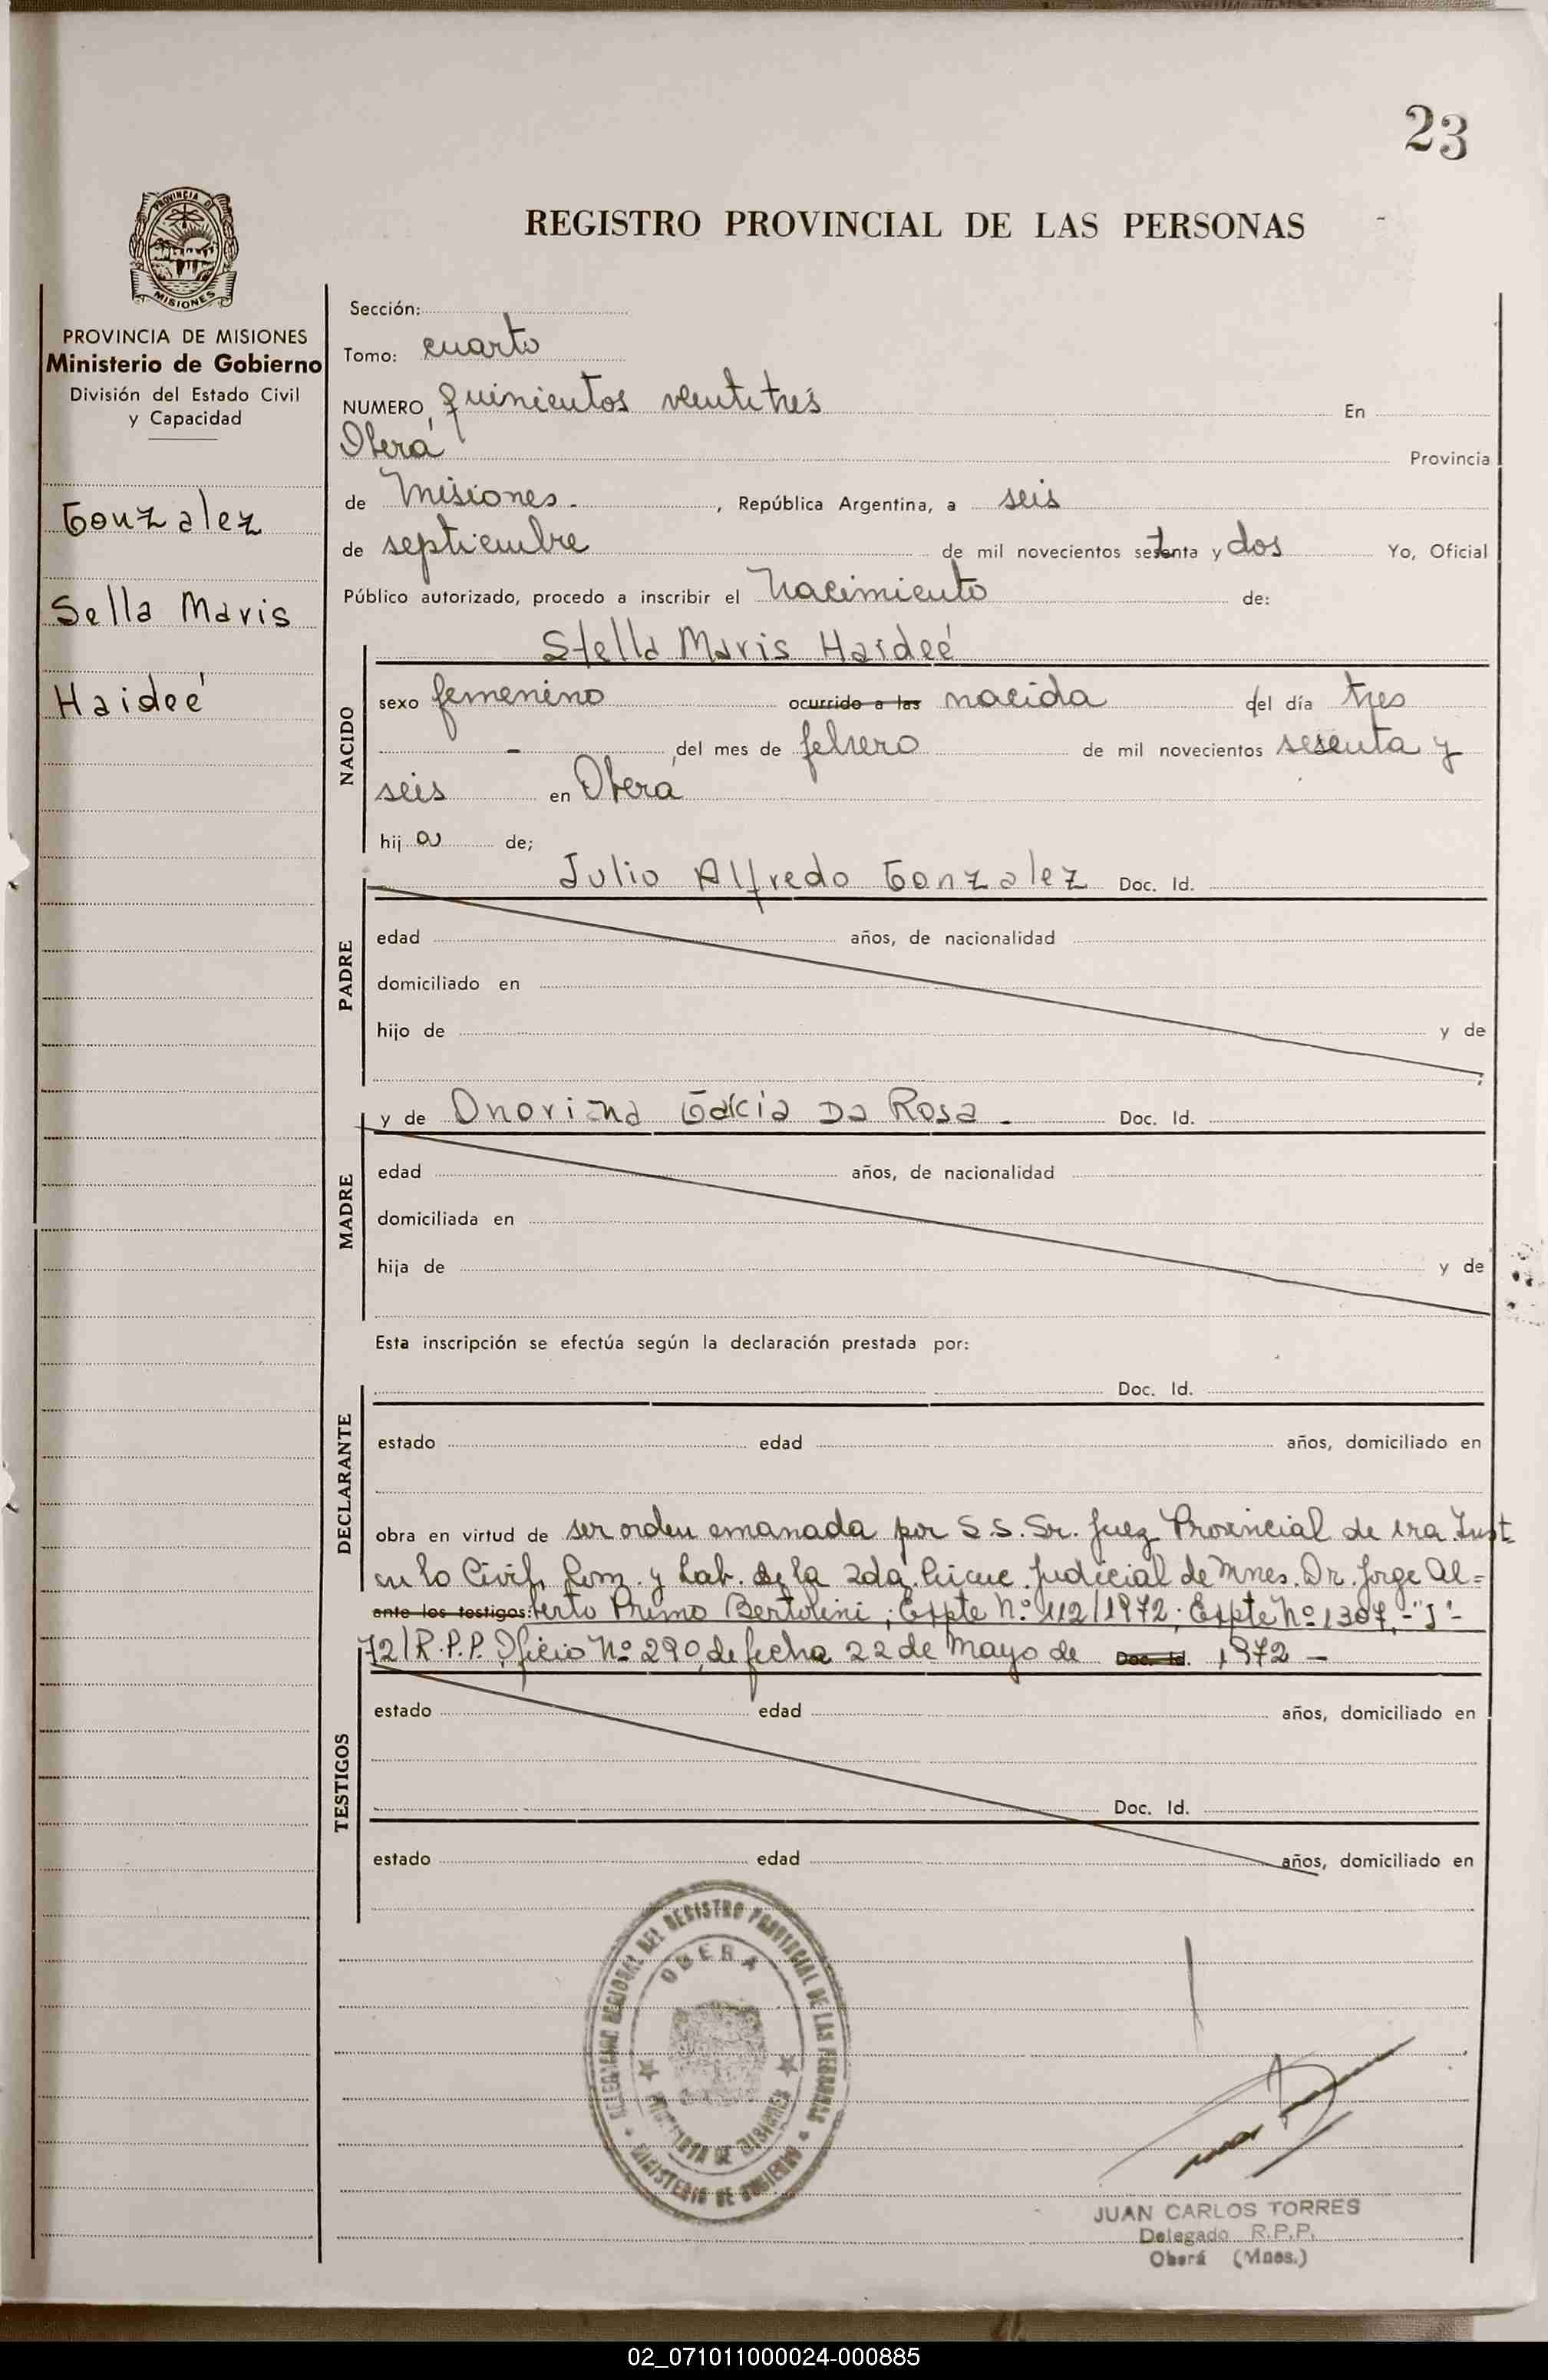 23
REGISTRO PROVINCIAL DE LAS PERSONAS
PROVINCIA DE MISIONES
PROVINCIA DE MISIONES
Ministerio de Gobierno
División del Estado Civil
y Capacidad
Gonzalez
Sella Maris
Haideé
Sección:
Tomo: cuarto
NUMERO quinientos veintitrés En
Oberá Provincia
de Misiones. , República Argentina, a seis
de septiembre de mil novecientos setenta y dos Yo, Oficial
Público autorizado, procedo a inscribir el Nacimiento de:
Stella Maris Haideé
NACIDO
sexo femenino ocurrido a las nacida del día tres
- del mes de febrero de mil novecientos sesenta y
seis en Oberá
hija de;
PADRE
Julio Alfredo Gonzalez Doc. Id.
edad años, de nacionalidad
domiciliado en
hijo de y de
MADRE
y de Onorina Garcia Da Rosa - Doc. Id.
edad años, de nacionalidad
domiciliada en
hija de y de
Esta inscripción se efectúa según la declaración prestada por:
DECLARANTE
Doc. Id.
estado edad años, domiciliado en
obra en virtud de ser orden emanada por S.S. Sr. Juez Provincial de 1ra Inst
en lo Civil, Com. y Lab. de la 2da. Circuc. Judicial de Mnes. Dr. Jorge Al=
ante los testigos: berto Primo Bertolini; Expte Nº 112/1972; Expte Nº 1307,-"J"-
72/R.P.P. Oficio Nº 290, de fecha 22 de Mayo de Doc. Id. 1972 -
TESTIGOS
estado edad años, domiciliado en
Doc. Id.
estado edad años, domiciliado en
DELEGACION REGIONAL DEL REGISTRO PROVINCIAL DE LAS PERSONAS
OBERA
PROVINCIA DE MISIONES
MINISTERIO DE GOBIERNO
JUAN CARLOS TORRES
Delegado R.P.P.
Oberá (Mnes.)
02_071011000024-000885